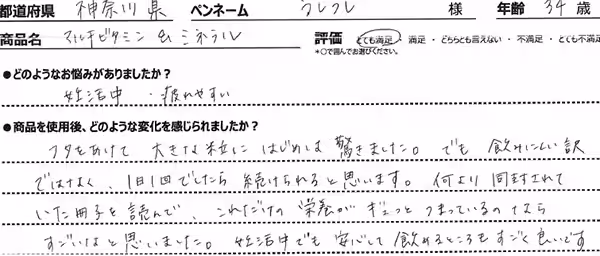 都道府県 神奈川県 ペンネーム うしうし 様 年齢 34 歳
商品名 マルチビタミン&ミネラル 評価 とても満足・満足・どちらとも言えない・不満足・とても不満
*○で囲んでお選びください。
●どのようなお悩みがありましたか?
妊活中・疲れやすい
●商品を使用後、どのような変化を感じられましたか?
フタをあけて 大きな粒に はじめは 驚きました。でも 飲みにくい訳
ではなく、1日1回でしたら 続けられると思います。何より 同封されて
いた冊子を読んで、これだけの 栄養が ギュっと つまっているのなら
すごいなと思いました。妊活中でも 安心して 飲めるところも すごく良いです